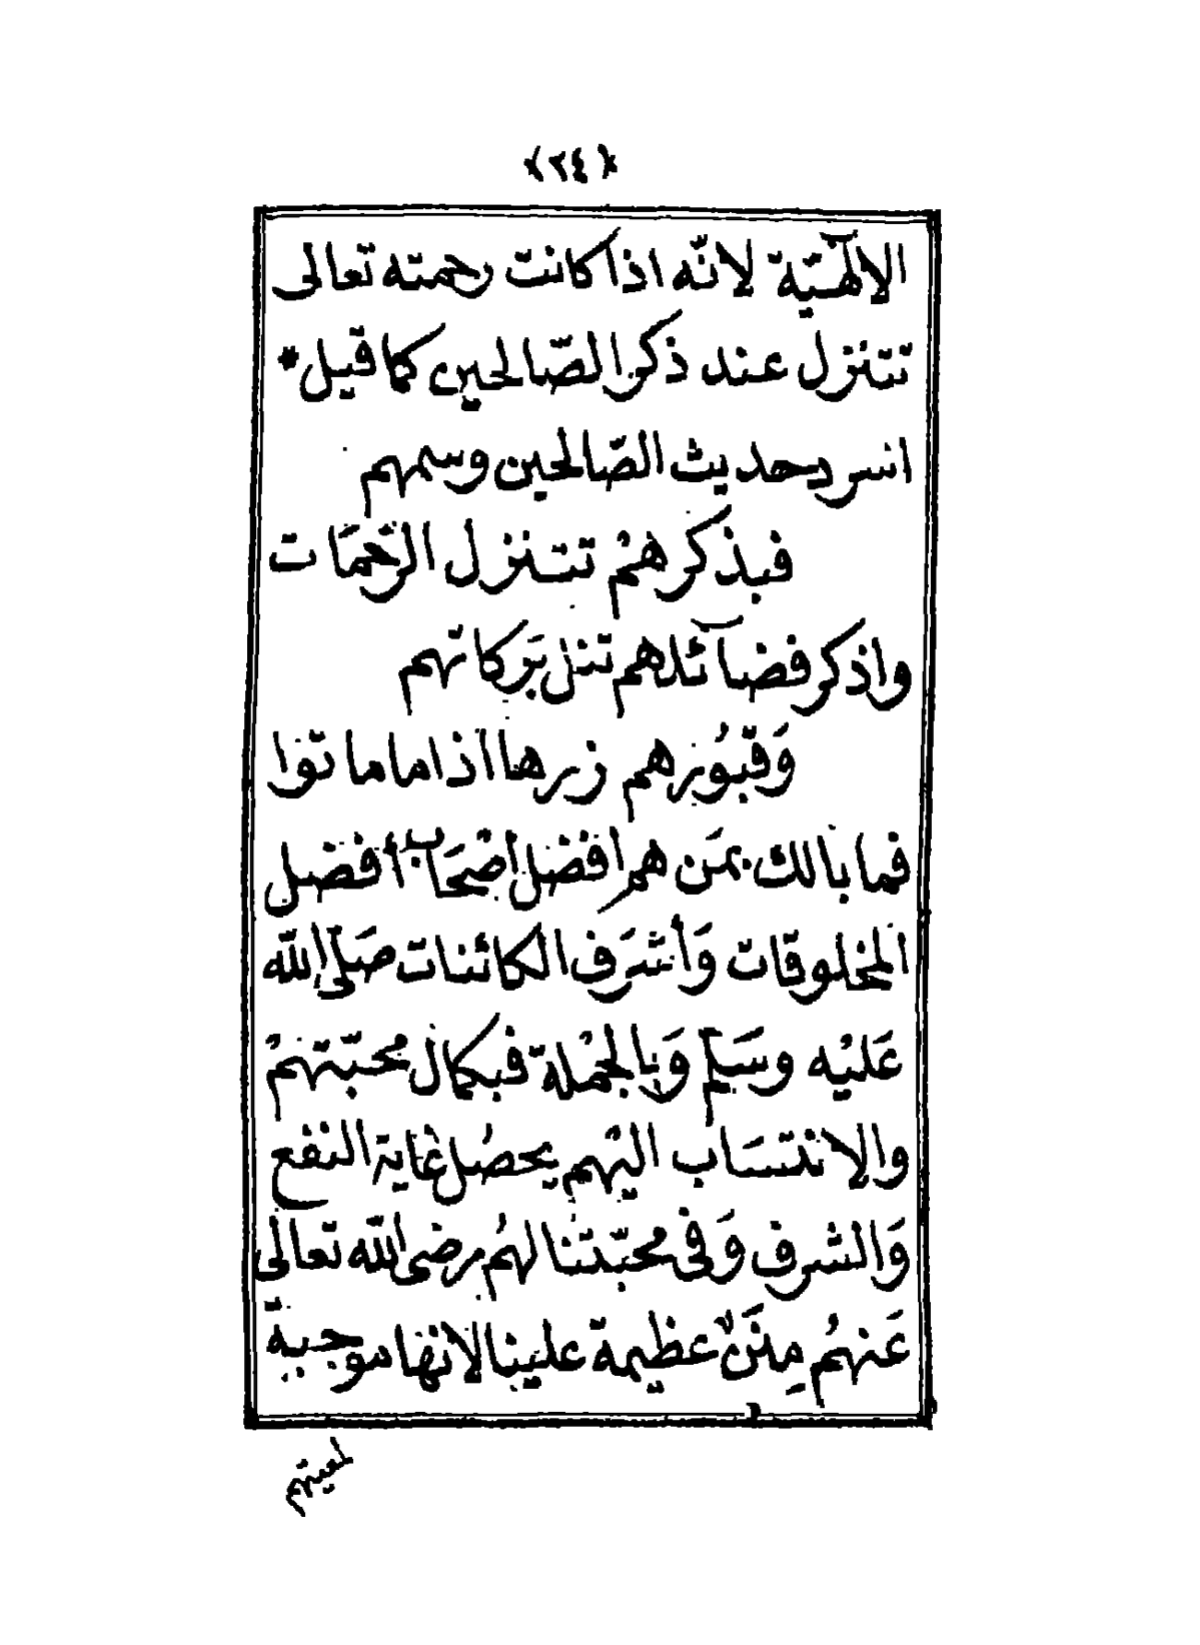 ﴿٢٤﴾
الالٓهيّة لانّه اذا كانت رحمته تعالى
تتنزل عند ذكر الصّالحين كما قيل *
اسرد حديث الصّالحين وسمهم
فبذكرهمْ تتنزل الرّحمَات
واذكر فضآئلهم تنل بَركاتهم
وَقبُورهم زرها اذا ما ماتوا
فما بالك بمَن هم أفضل أصْحَاب أفضل
المخلوقات وَأشرَف الكائنات صَلى الله
عَليْه وسَلم وَبالجمْلة فبكمال محبّتهمْ
والانتسَاب اليْهم يحصُل غاية النفع
وَالشرف وَفى محبّتنا لهُم رضى الله تعالى
عَنهُم مِنَنٌ عظيمة علينا لانها موجبة
لمعيتهم